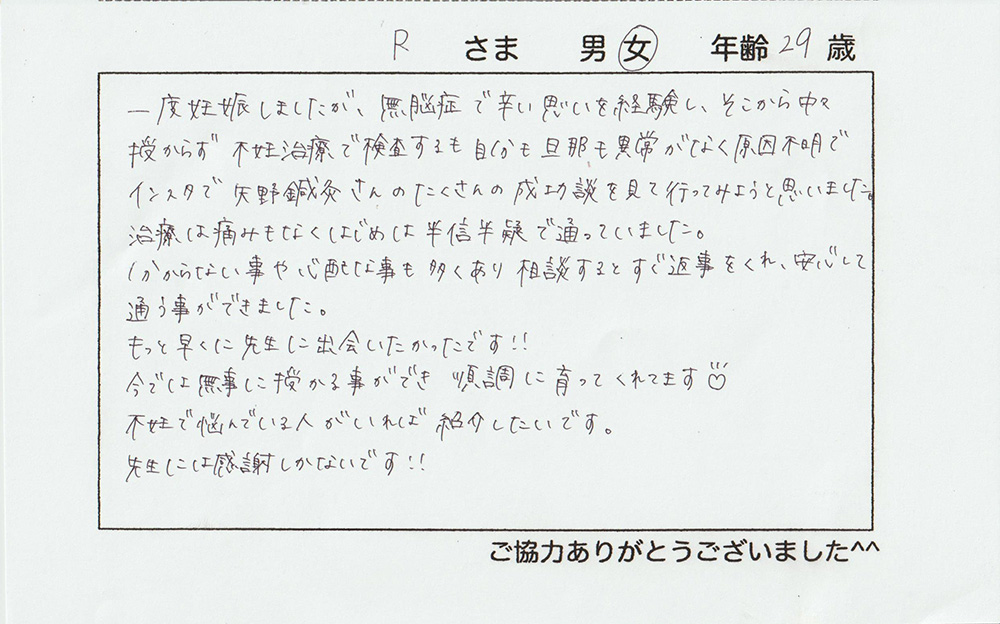 R さま 男 女 年齢 29 歳
一度妊娠しましたが、無脳症で辛い思いを経験し、そこから中々
授からず 不妊治療で検査するも自分も旦那も異常がなく原因不明で
インスタで矢野鍼灸さんのたくさんの成功談を見て行ってみようと思いました。
治療は痛みもなくはじめは半信半疑で通っていました。
分からない事や心配な事も多くあり相談するとすぐ返事をくれ、安心して
通う事ができました。
もっと早くに先生に出会いたかったです!!
今では無事に授かる事ができ 順調に育ってくれてます
不妊で悩んでいる人がいれば紹介したいです。
先生には感謝しかないです!!
ご協力ありがとうございました^^